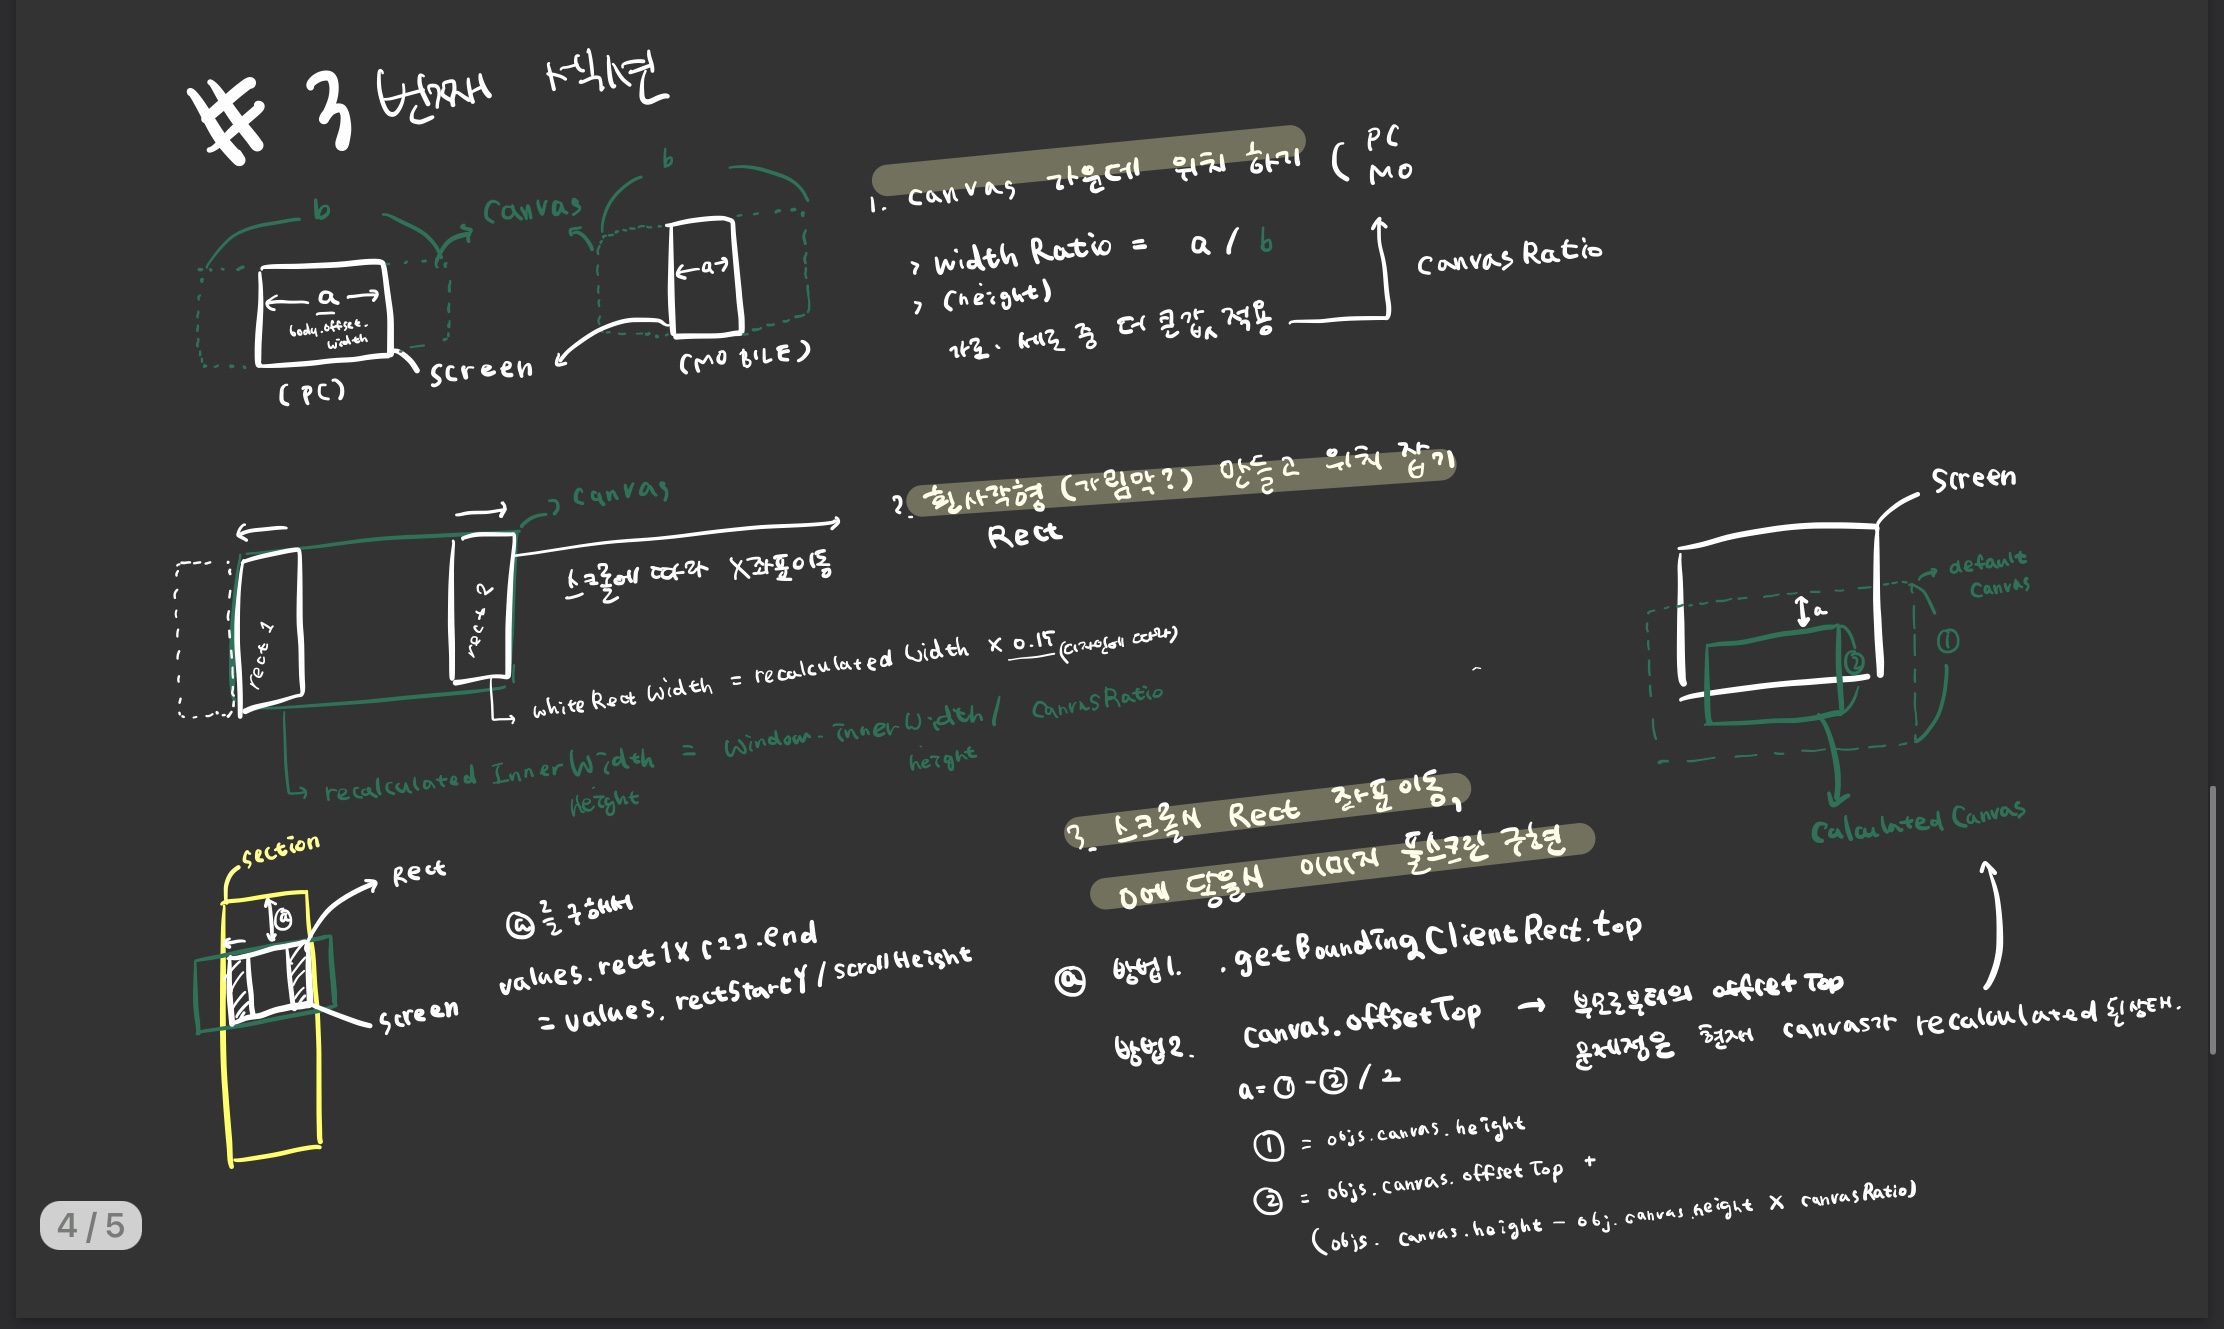 # 3 번째 섹션
b
canvas
b
a
body.offset.
width
(PC)
screen
a
(MOBILE)
1. canvas 가운데 위치 하기 ( PC
MO
> width Ratio = a / b
> (height)
가로. 세로 중 더 큰값 적용
canvas Ratio
canvas
rect 1
rect 2
스크롤에 따라 X좌표이동
2. 흰사각형 (가림막?) 만들고 위치 잡기
Rect
white Rect Width = recalculated Width × 0.15 (디자인에 따라)
recalculated InnerWidth = window.innerWidth / CanvasRatio
Height
height
screen
default
canvas
a
①
②
Calculated Canvas
section
Rect
ⓐ
screen
ⓐ 를 구해서
values.rect1X[2].end
= values.rectStartY / scrollHeight
3. 스크롤시 Rect 좌표이동,
0에 닿을시 이미지 풀스크린 구현
ⓐ 방법1. .getBoundingClientRect.top
방법2. canvas.offsetTop → 부모로부터의 offsetTop
문제점은 현재 canvas가 recalculated 된상태.
a = ① - ② / 2
① = objs.canvas.height
② = objs.canvas.offsetTop +
(objs.canvas.height - obj.canvas.height × canvasRatio)
4 / 5